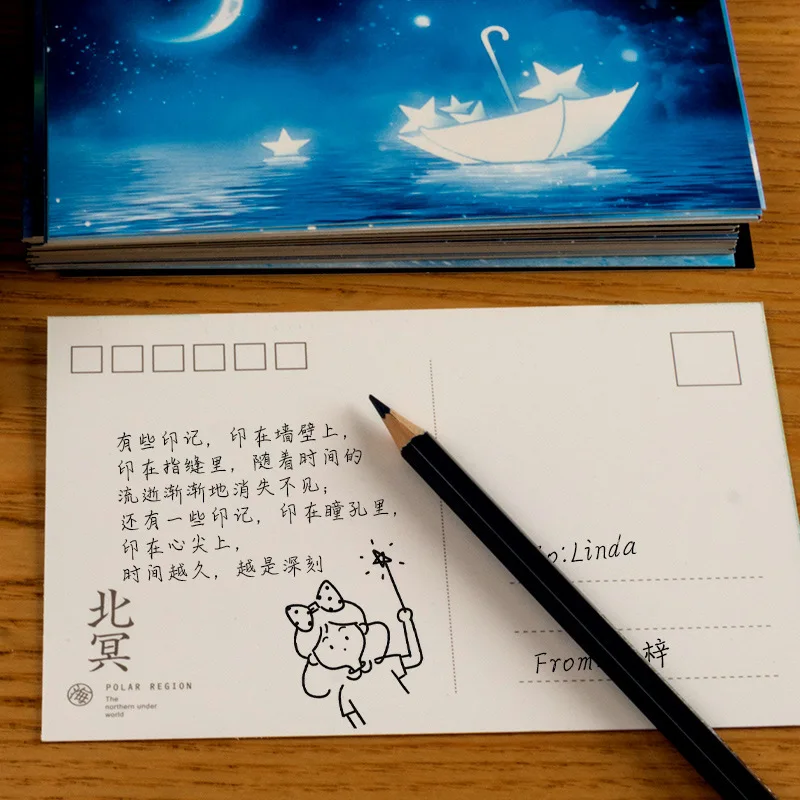 有些印记，印在墙壁上，
印在指缝里，随着时间的
流逝渐渐地消失不见；
还有一些印记，印在瞳孔里，
印在心尖上，
时间越久，越是深刻
北冥
海
POLAR REGION
The
northern under
world
:Linda
From 梓